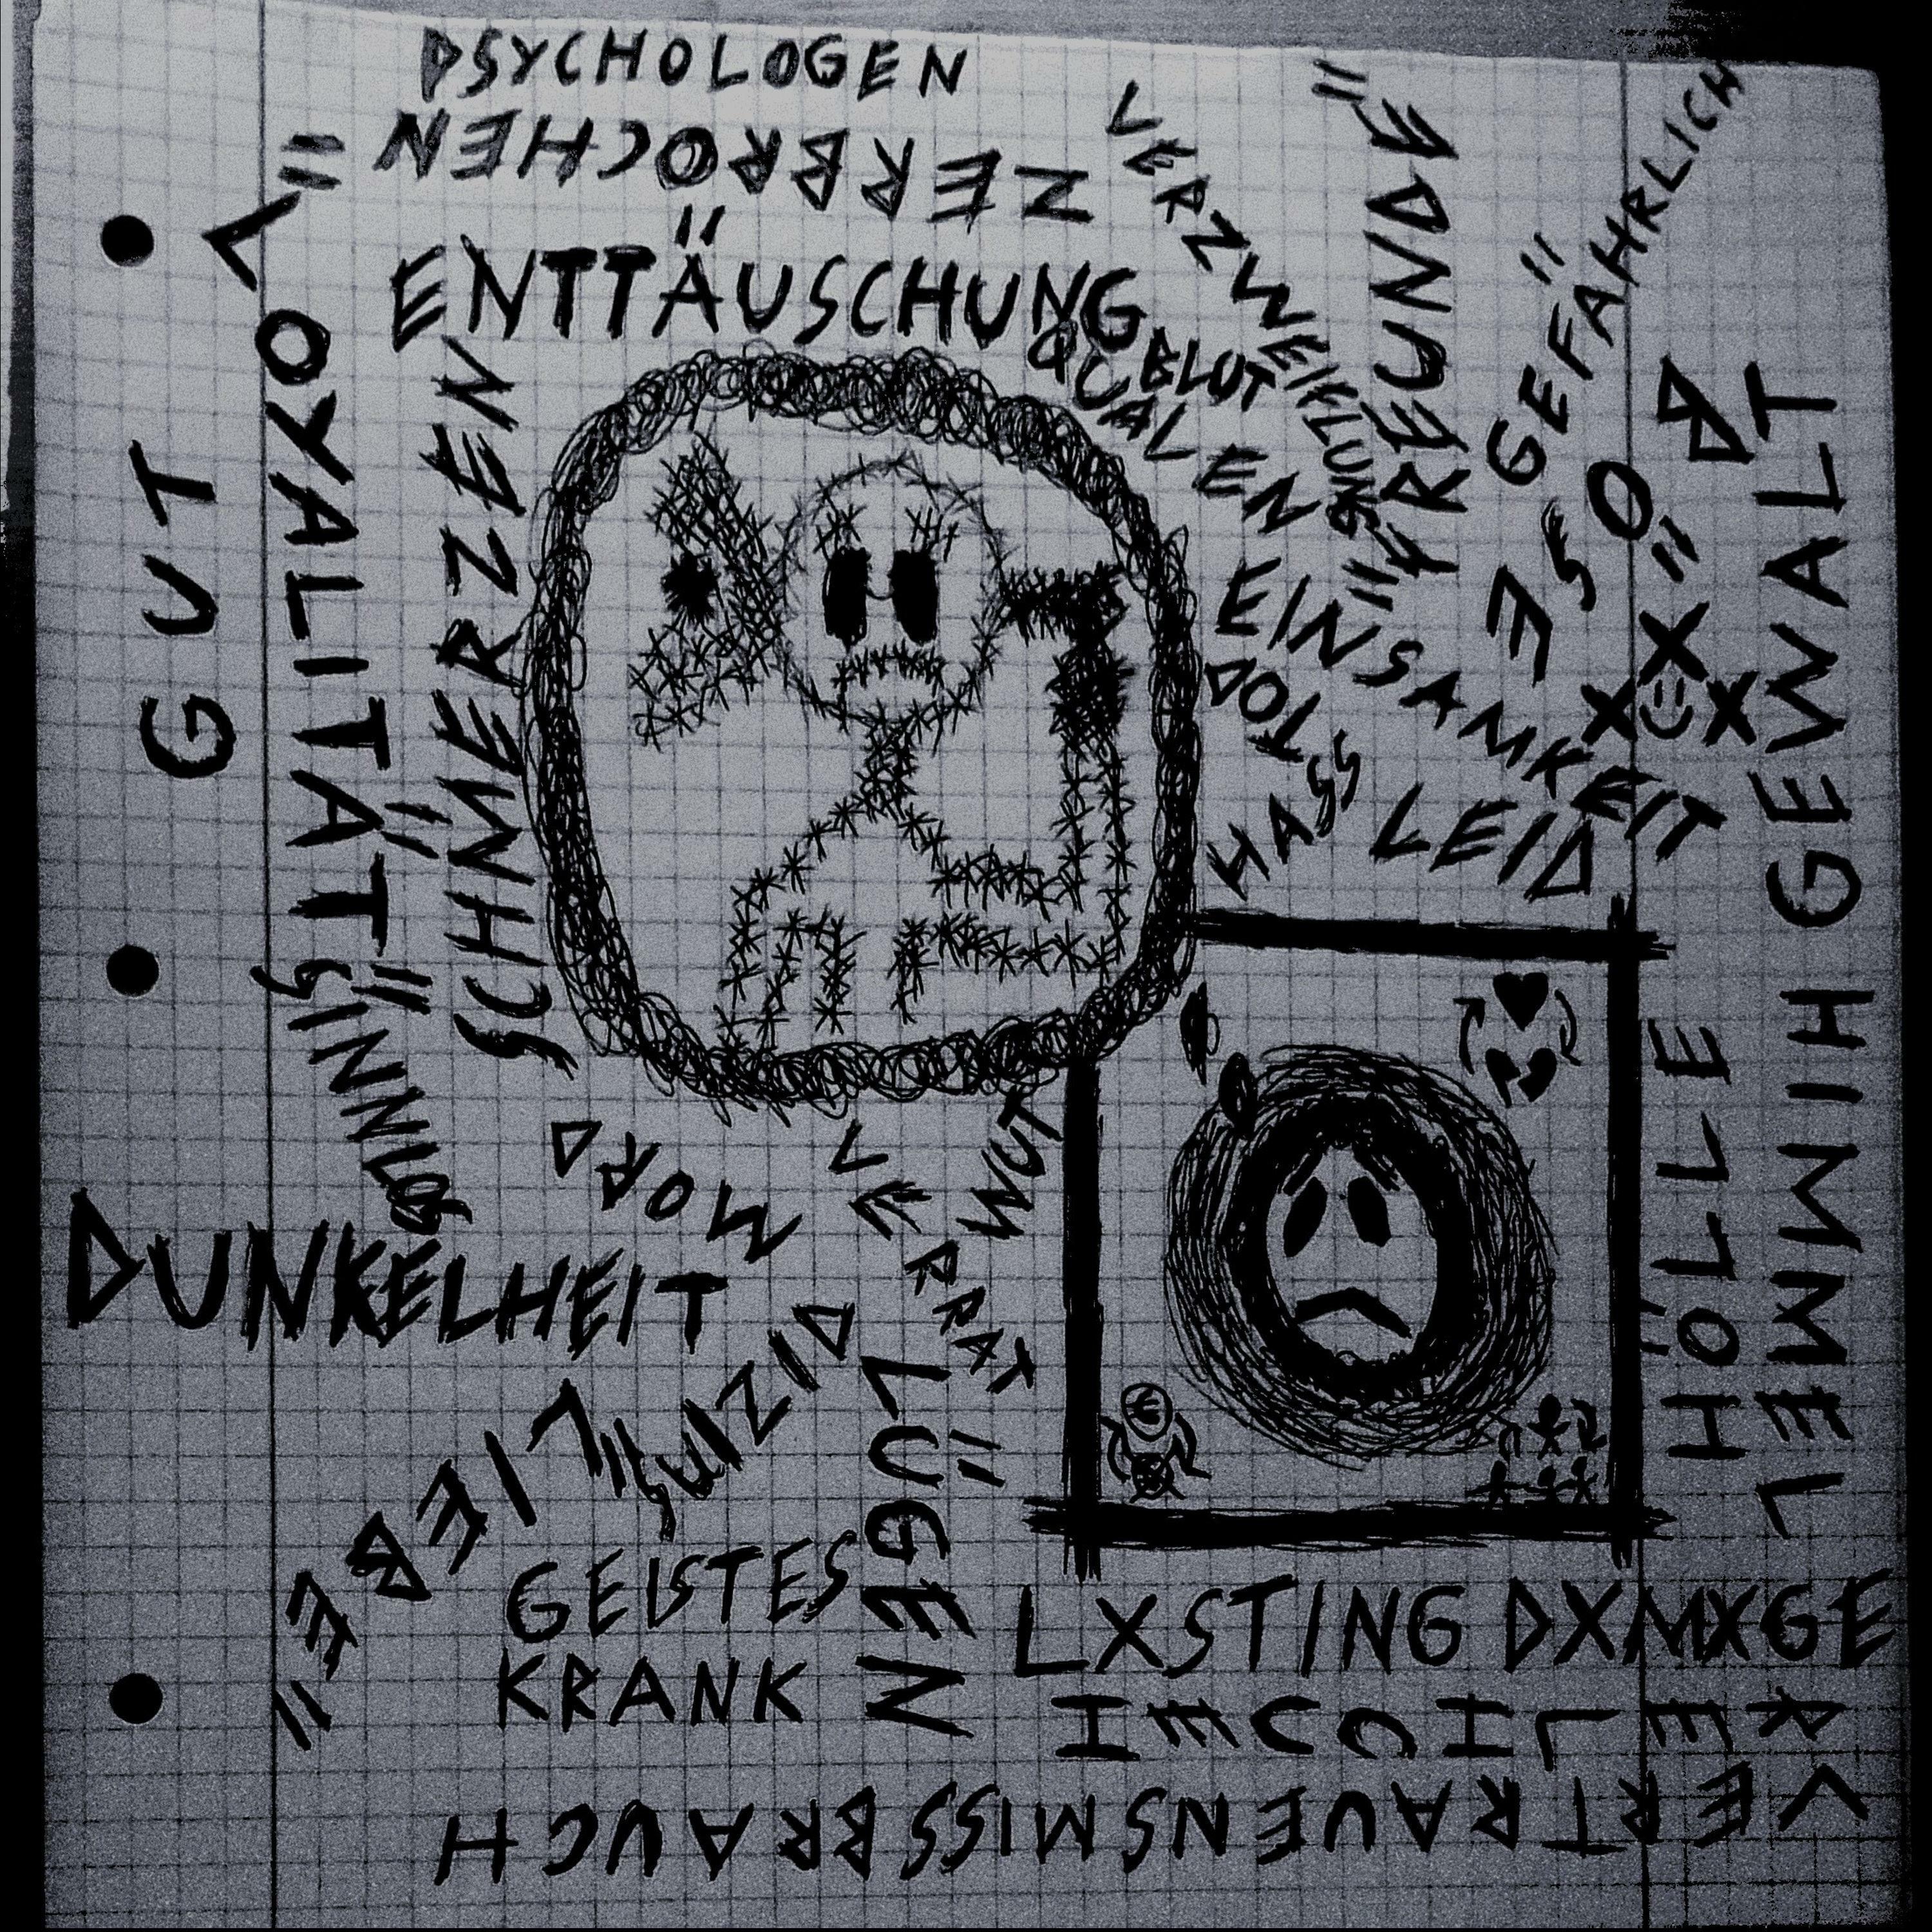 PSYCHOLOGEN
ZERBROCHEN
ENTTÄUSCHUNG
VERZWEIFLUNG
"FREUNDE"
GEFÄHRLICH
BLUT
QUALEN
"LOYALITÄT"
GUT
SCHMERZEN
EINSAMKEIT
BÖSE
GEWALT
TOD
HASS
LEID
SINNLOS
HIMMEL
HÖLLE
DUNKELHEIT
MORD
VERRAT
WUT
SUIZID
"LIEBE"
LÜGEN
GEISTES
KRANK
LXSTING DXMXGE
HEUCHLER
VERTRAUENSMISSBRAUCH
€